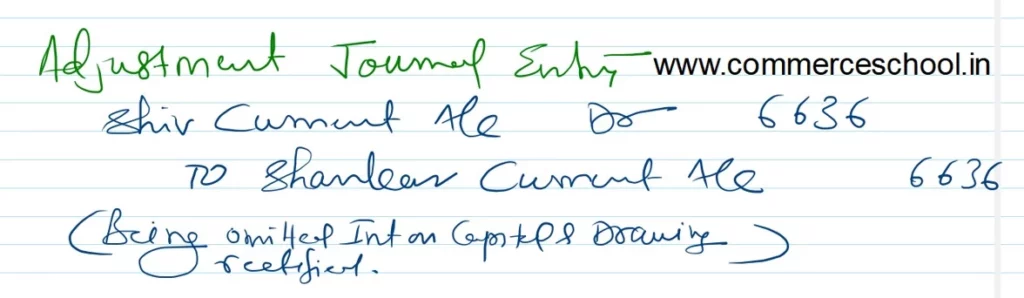 Adjustment Journal Entry www.commerceschool.in
Shiv Current A/c Dr 6636
To Shankar Current A/c 6636
(Being omitted Int on Capital & Drawing)
rectified.